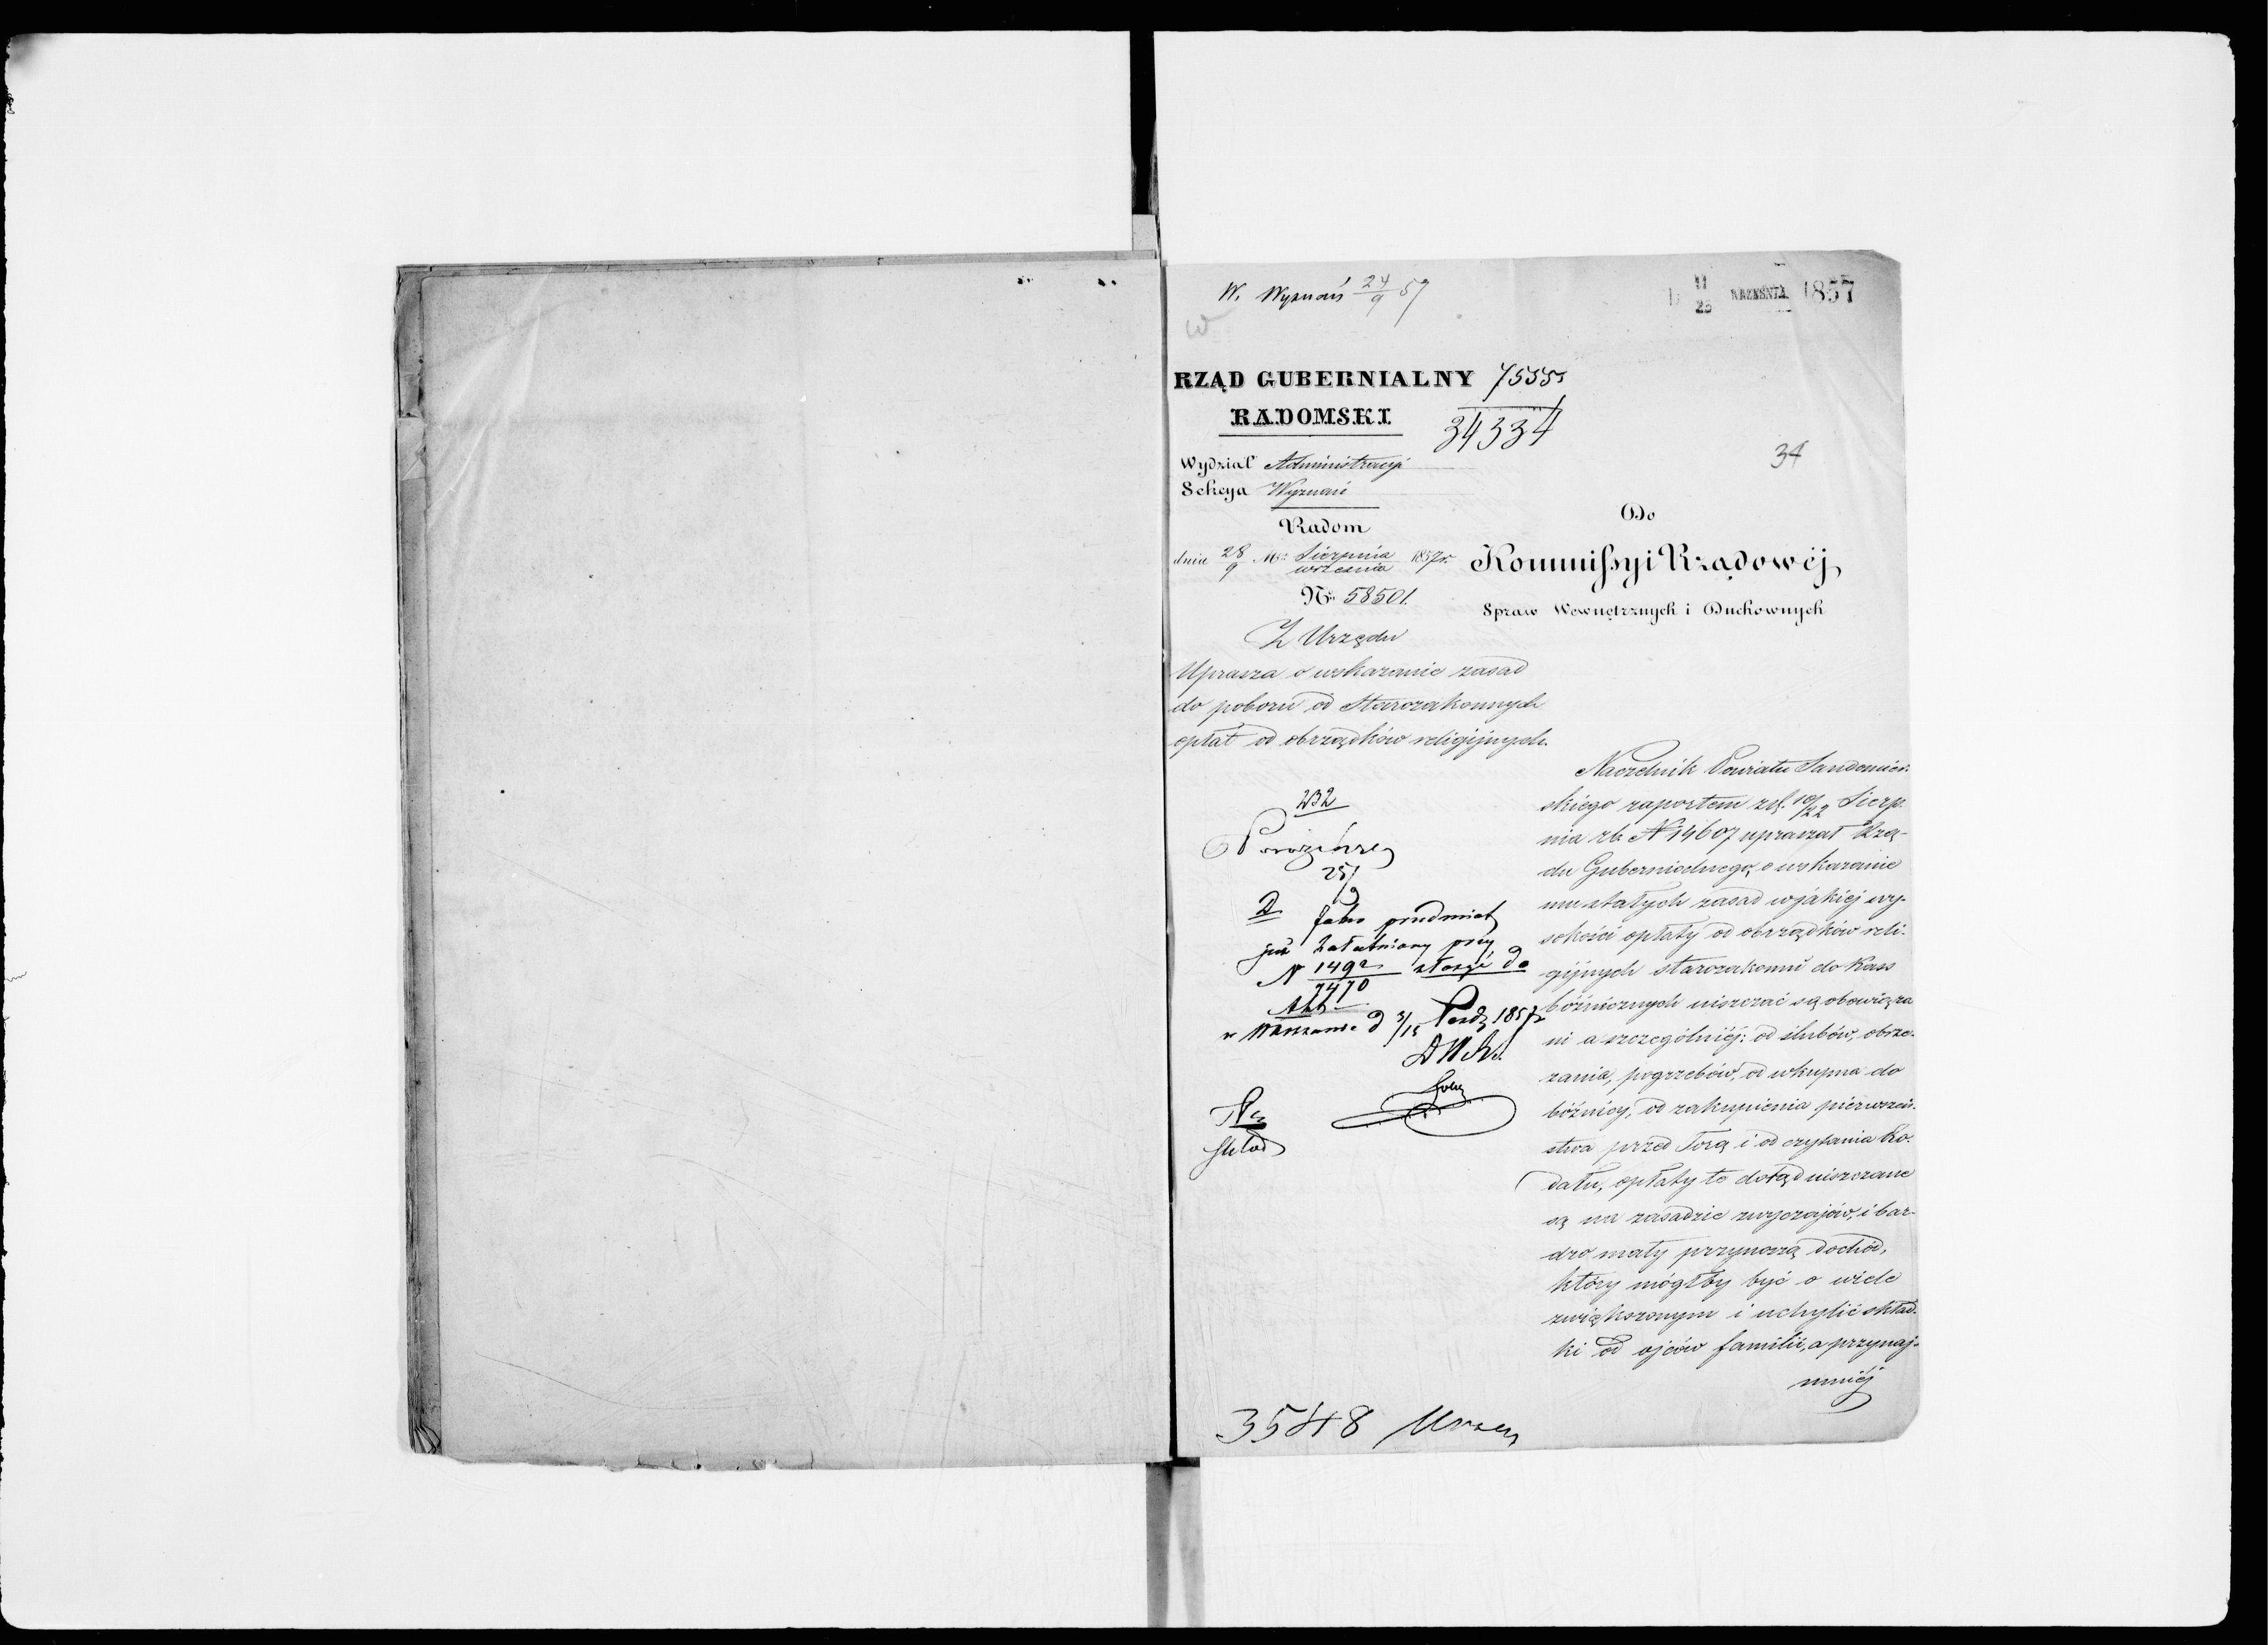 W. Wyznań 24/9 57
11/23 WRZEŚNIA 1857
RZĄD GUBERNIALNY
RADOMSKI
34334
34
Wydział Administracyi
Sekcya Wyznań
Radom
dnia 28/9 Mca Sierpnia/września 1857 r.
No 58501.
Z Urzędu
Uprasza o wskazanie zasad
do poboru od Starozakonnych
opłat od obrządków religijnych.
Do
Kommissyi Rządowéj
Spraw Wewnętrznych i Duchownych
Naczelnik Powiatu Sandomier-
skiego raportem z d. 10/22 Sierp-
nia rb. N 14607 upraszał Rzą-
du Gubernialnego, o wskazanie
mu stałych zasad w jakiéj wy-
sokości opłaty od obrządków reli-
gijnych starozakonni do Kass
bóżniczych uiszczać są obowiąza
ni a szczególniéj: od ślubów, obrze-
zania, pogrzebów, od wkupna do
bóżnicy, od zakupienia pierwszeń-
stwa przed Torą i od czytania Ro-
dału, opłaty te dotąd uiszczane
są na zasadzie zwyczajów, i bar-
dzo mały przynoszą dochód,
który mógłby być o wiele
zwiększonym i uchylić skład-
ki od ojców familii, a przynaj-
mniéj
232
25/9
D
jako przedmiot
już załatwiony przy
N 1492/7470 złożyć do
Akt
w Warszawie d 3/15 Paźdz 1857 r
3548